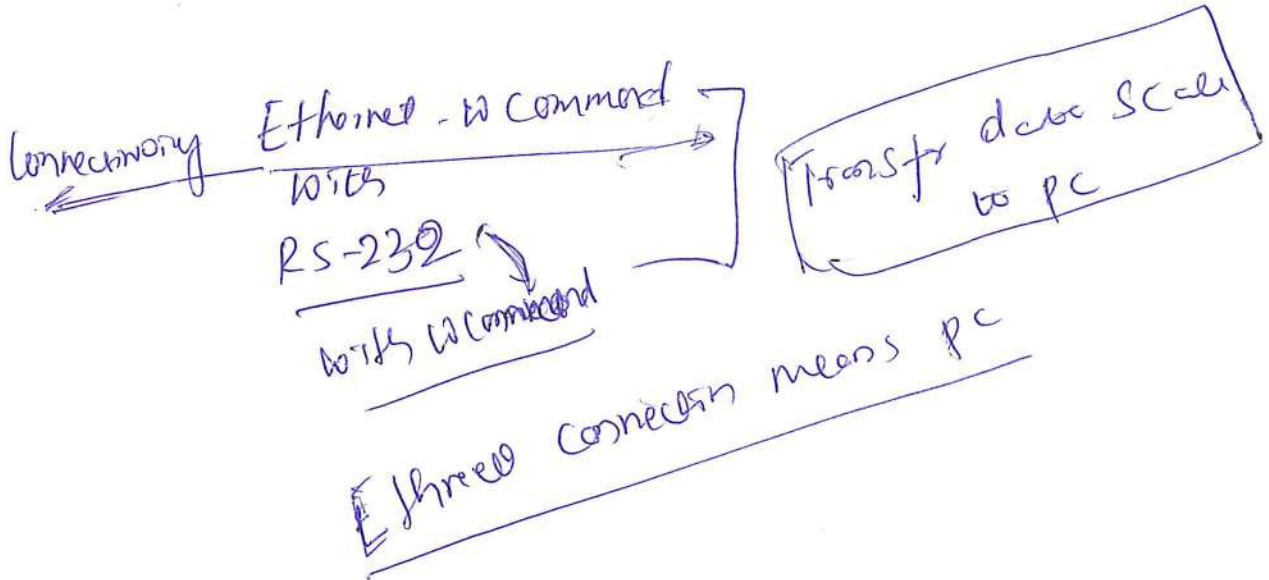 Connectivity Ethernet - W Command
with
RS-232
with W Command
Transfr data Scale
to PC
Ethreed connectin means PC